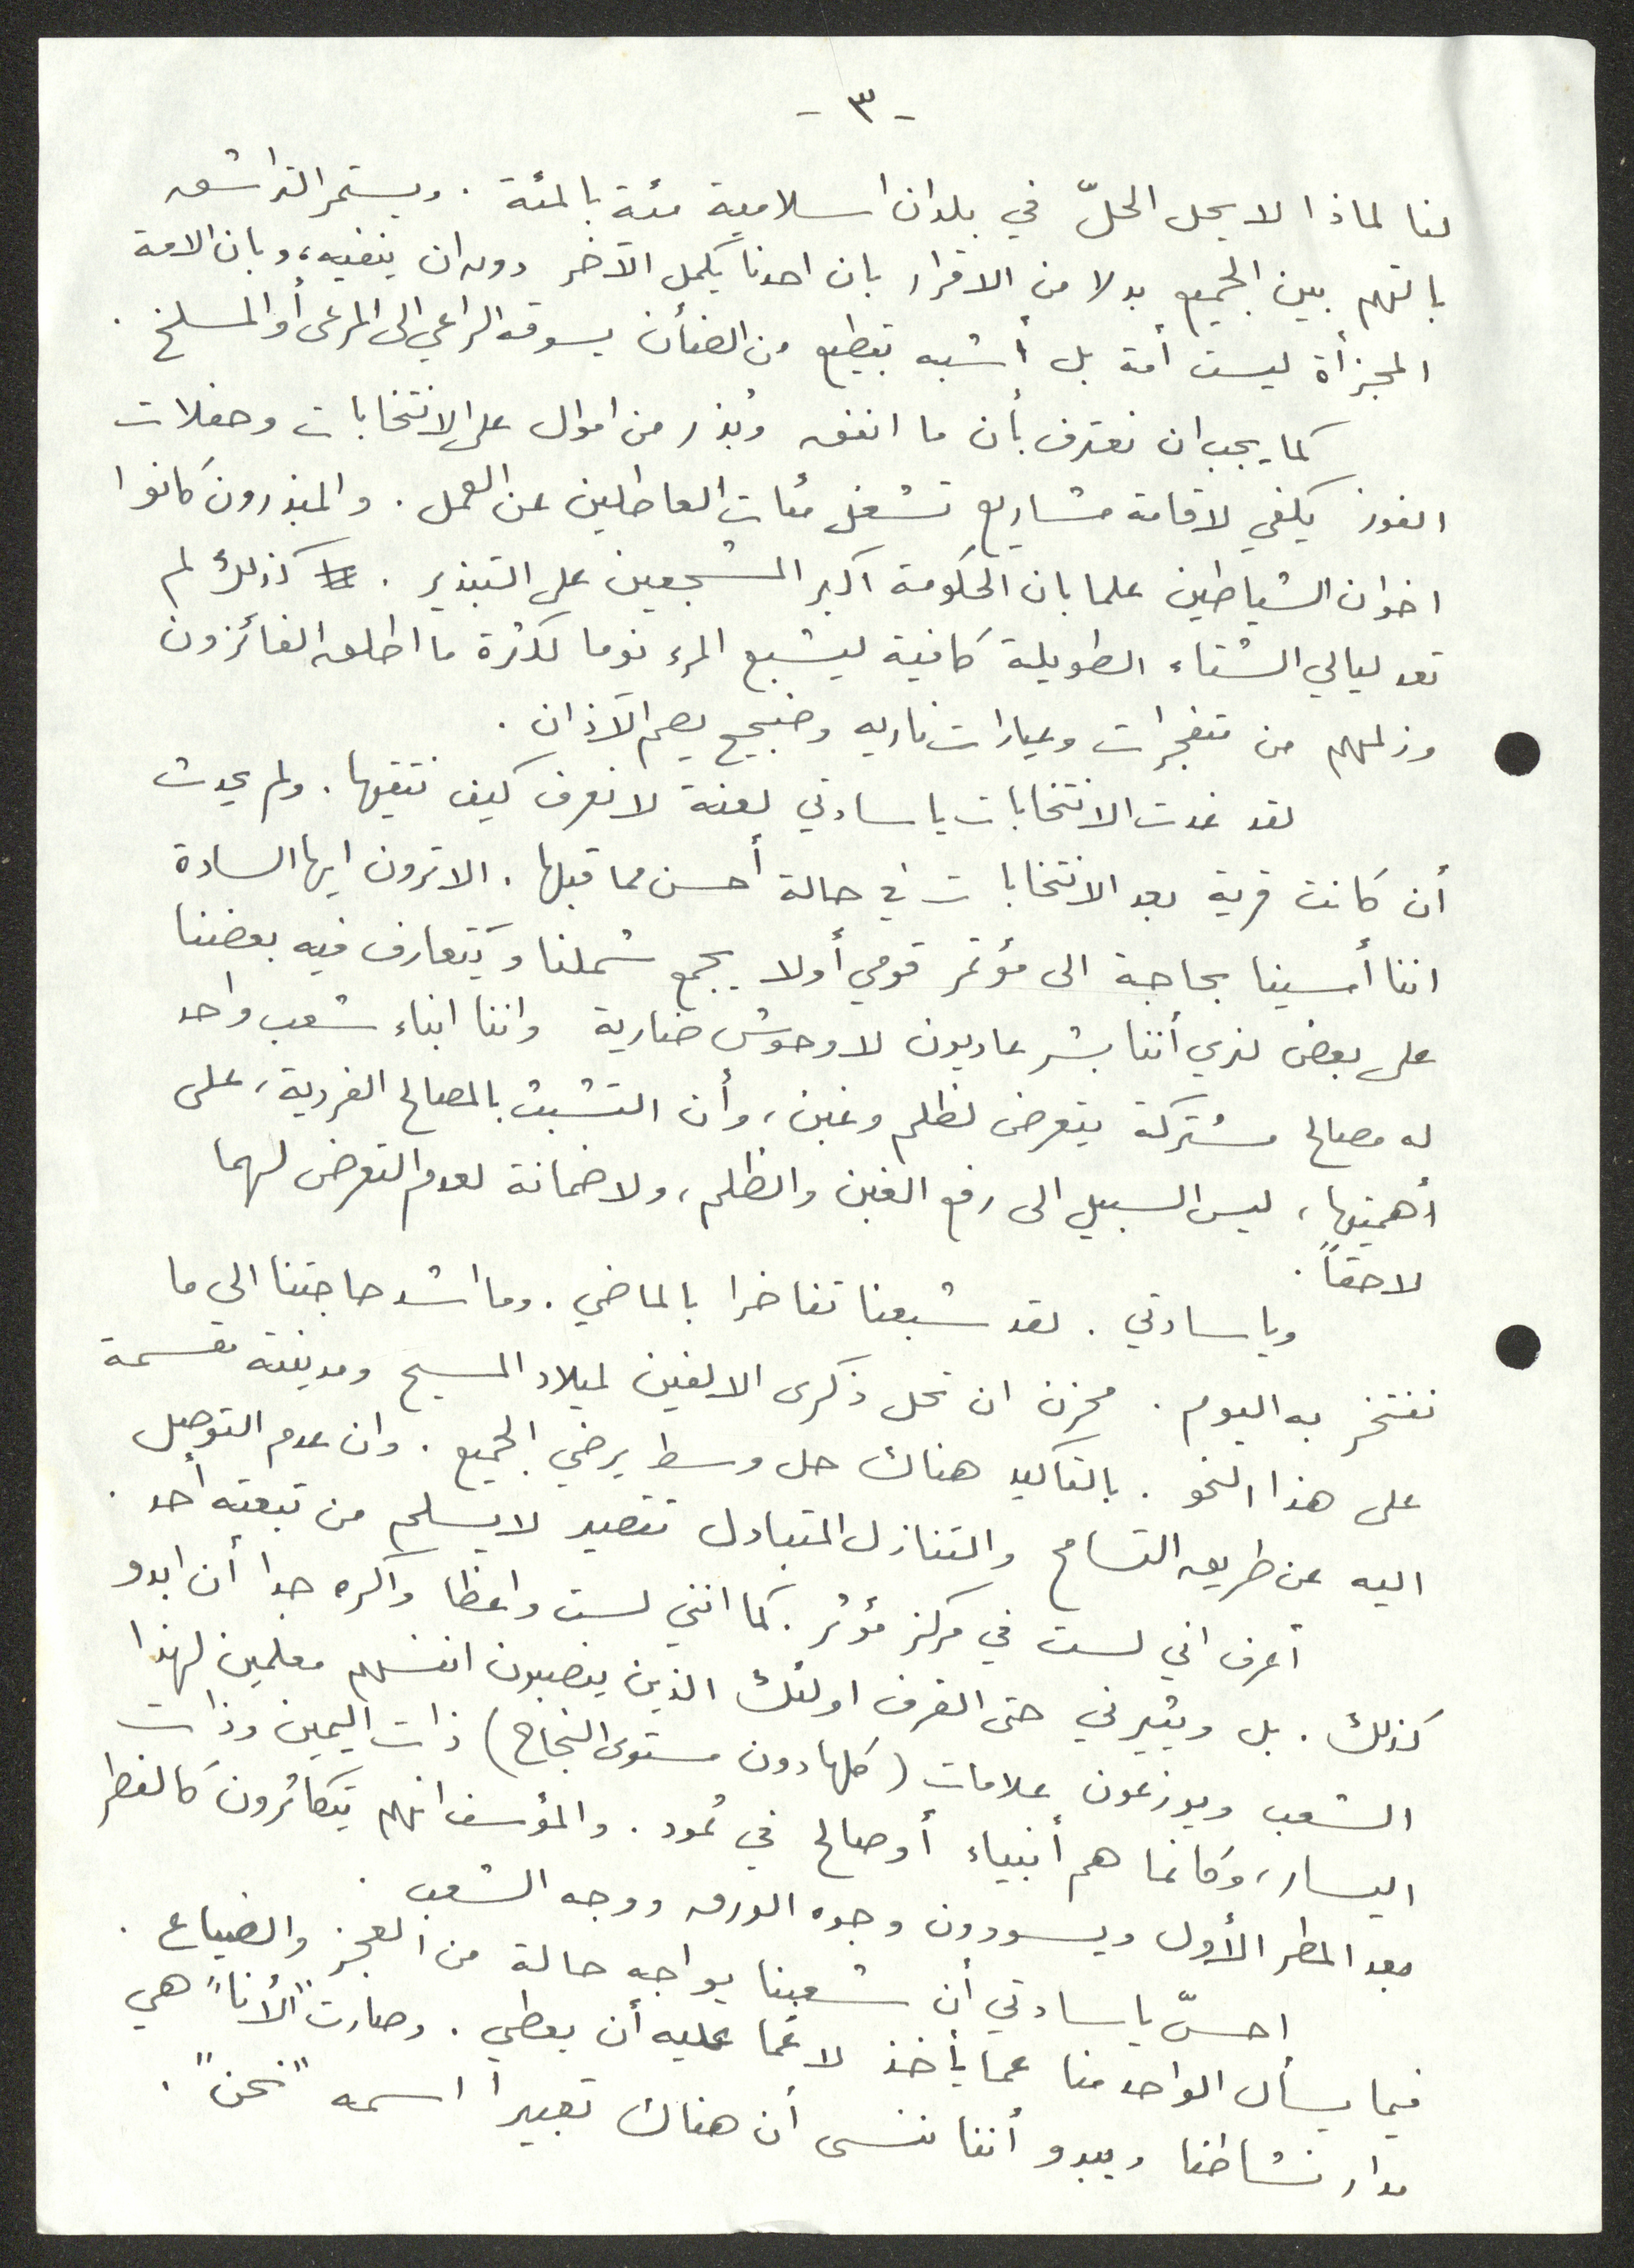 - ٣ -
لنا لماذا لا يحل الحلّ في بلدان اسلامية مئة بالمئة . ويستمر التراشق
بالتهم بين الجميع بدلا من الاقرار بان احدنا يكمل الآخر دون ان ينفيه، وبان الامة
المجزأة ليست أمة بل أشبه بقطيع من الضأن يسوقه الراعي الى المرعى أو المسلخ .
كما يجب ان نعترف بأن ما انفق وبُذر من اموال على الانتخابات وحفلات
الفوز يكفي لاقامة مشاريع تشغل مئات العاطلين عن العمل . والمبذرون كانوا
اخوان الشياطين علما بان الحكومة اكبر المشجعين على التبذير . كذلك لم
تعد ليالي الشتاء الطويلة كافية ليشبع المرء نوما لكثرة ما اطلقه الفائزون
وزلمهم من متفجرات وعيارات ناريه وضجيج يصم الآذان .
لقد غدت الانتخابات يا سادتي لعنة لا نعرف كيف نتقيها . ولم يحدث
أن كانت قرية بعد الانتخابات في حالة أحسن مما قبلها . الا ترون ايها السادة
اننا أمسينا بحاجة الى مؤتمر قومي أولا يجمع شملنا ويتعارف فيه بعضنا
على بعض لنرى أننا بشر عاديون لا وحوش ضارية واننا ابناء شعب واحد
له مصالح مشتركة يتعرض لظلم وغبن ، وأن التشبث بالمصالح الفردية ، على
أهميتها ، ليس السبيل الى رفع الغبن والظلم ، ولا ضمانة لعدم التعرض لهما
لاحقاً .
ويا سادتي . لقد شبعنا تفاخرا بالماضي . وما اشد حاجتنا الى ما
نفتخر به اليوم . محزن ان تحل ذكرى الالفين لميلاد المسيح ومدينته مقسمة
على هذا النحو . بالتاكيد هناك حل وسط يرضي الجميع . وان عدم التوصل
اليه عن طريق التسامح والتنازل المتبادل تقصير لا يسلم من تبعته أحد .
أعرف اني لست في مركز مؤثر . كما انني لست واعظا واكره جدا أن ابدو
كذلك . بل ويثيرني حتى القرف اولئك الذين ينصبون انفسهم معلمين لهذا
الشعب ويوزعون علامات (كلها دون مستوى النجاح) ذات اليمين وذات
اليسار ، وكانما هم أنبياء أو صالح في ثمود . والمؤسف انهم يتكاثرون كالفطر
بعد المطر الأول ويسودون وجوه الورق ووجه الشعب .
احسّ يا سادتي أن شعبنا يواجه حالة من العجز والضياع .
فيما يسأل الواحد منا عما يأخذ لا عما عليه أن يعطي . وصارت "الأنا" هي
مدار نشاطنا ويبدو أننا ننسى أن هناك تعبيراً اسمه "نحن" .